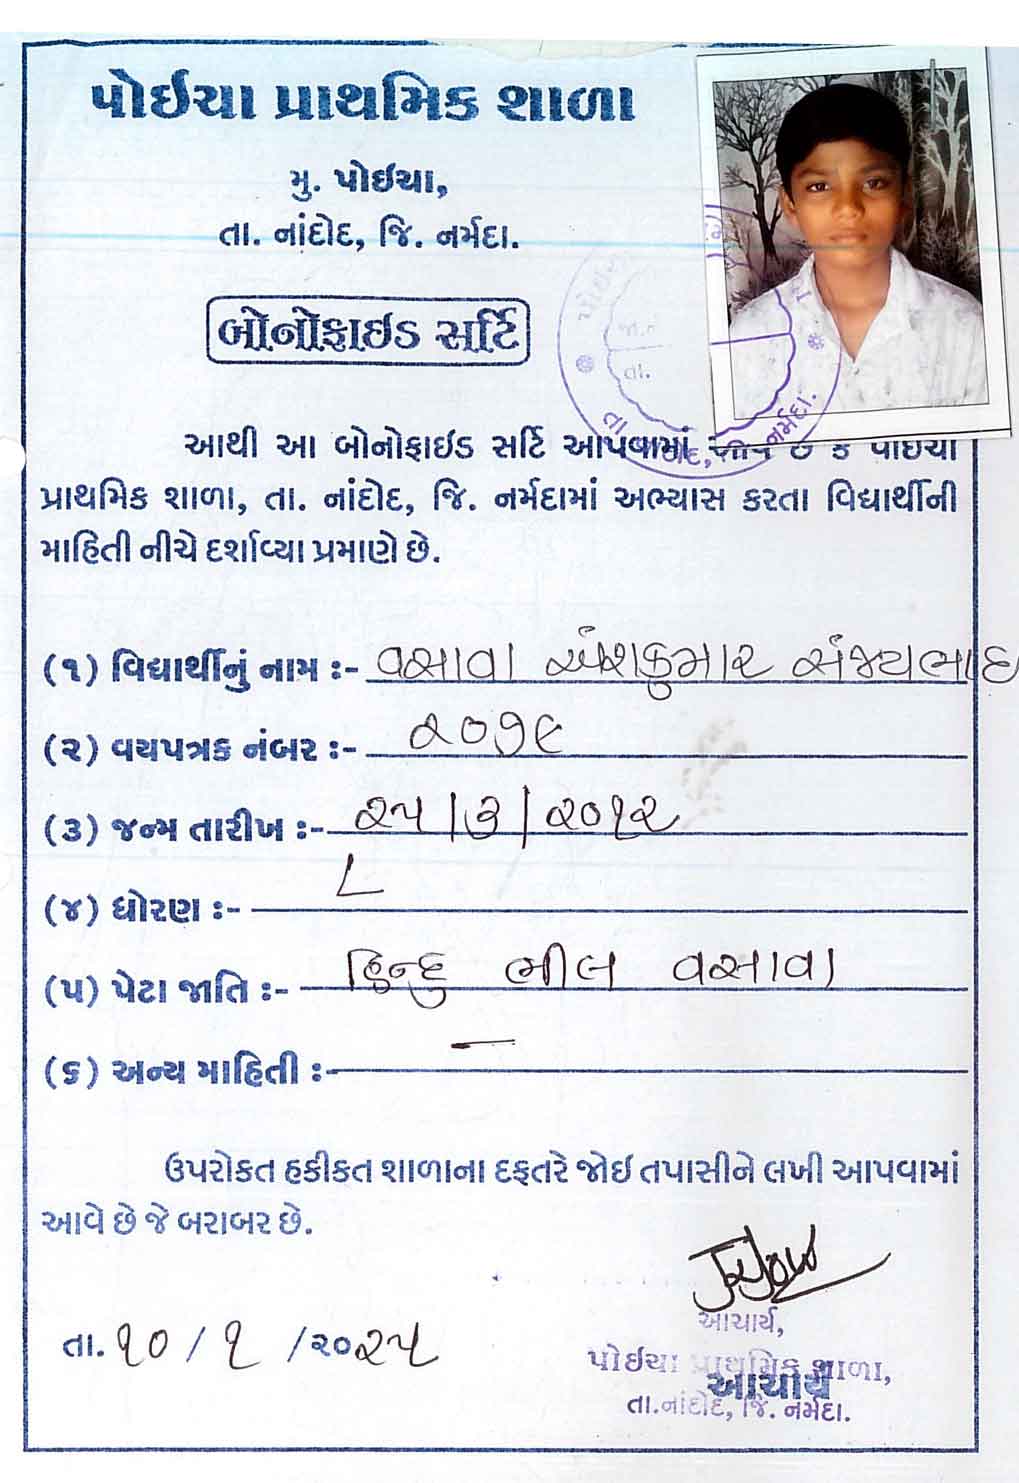 પોઈચા પ્રાથમિક શાળા
મુ. પોઈચા,
તા. નાંદોદ, જિ. નર્મદા.
બોનોફાઈડ સર્ટિ
આથી આ બોનોફાઈડ સર્ટિ આપવામાં આવે છે કે પોઈચા
પ્રાથમિક શાળા, તા. નાંદોદ, જિ. નર્મદામાં અભ્યાસ કરતા વિદ્યાર્થીની
માહિતી નીચે દર્શાવ્યા પ્રમાણે છે.
(૧) વિદ્યાર્થીનું નામ :- વસાવા અંશકુમાર સંજયભાઇ
(૨) વયપત્રક નંબર :- ૨૦૭૯
(૩) જન્મ તારીખ :- ૨૫/૩/૨૦૧૨
(૪) ધોરણ :- ૮
(૫) પેટા જાતિ :- હિન્દુ ભીલ વસાવા
(૬) અન્ય માહિતી :- —
ઉપરોકત હકીકત શાળાના દફતરે જોઇ તપાસીને લખી આપવામાં
આવે છે જે બરાબર છે.
આચાર્ય,
તા. ૧૦/૧/૨૦૨૫
પોઈચા પ્રાથમિક શાળા,
આચાર્ય
તા.નાંદોદ, જિ. નર્મદા.